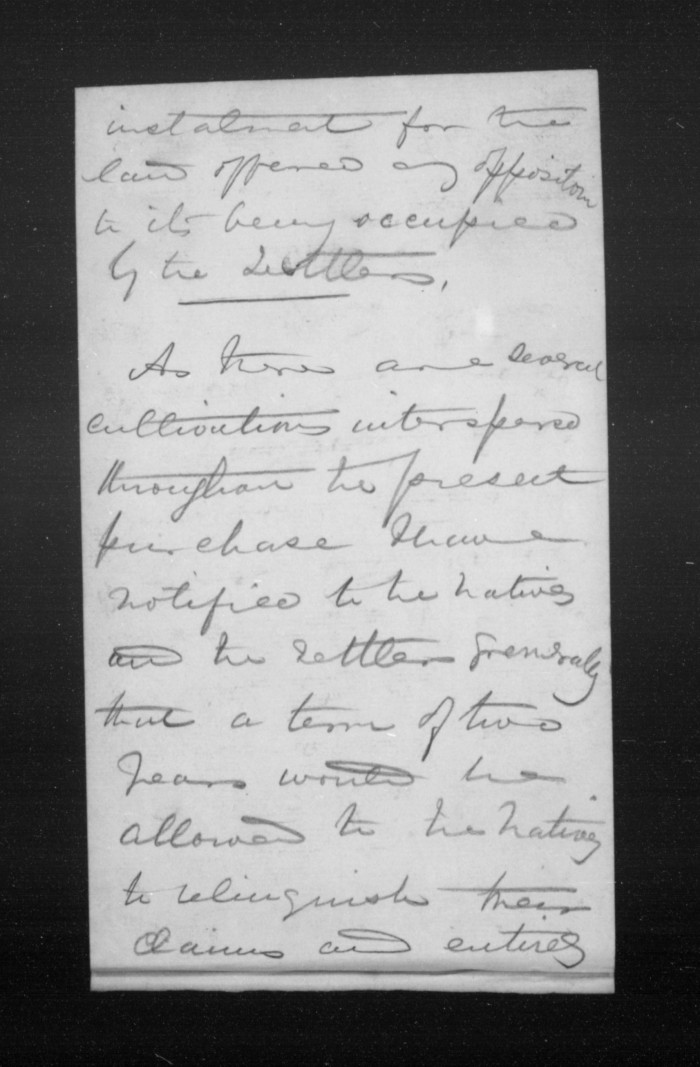 instalment for the
land offered any opposition
to its being occupied
by the Settlers,
As there are several
cultivations interspersed
throughout the present
purchase I have
notified to the natives
and the settlers generally
that a term of two
years would be
allowed to the natives
to relinquish their
claims and entirely